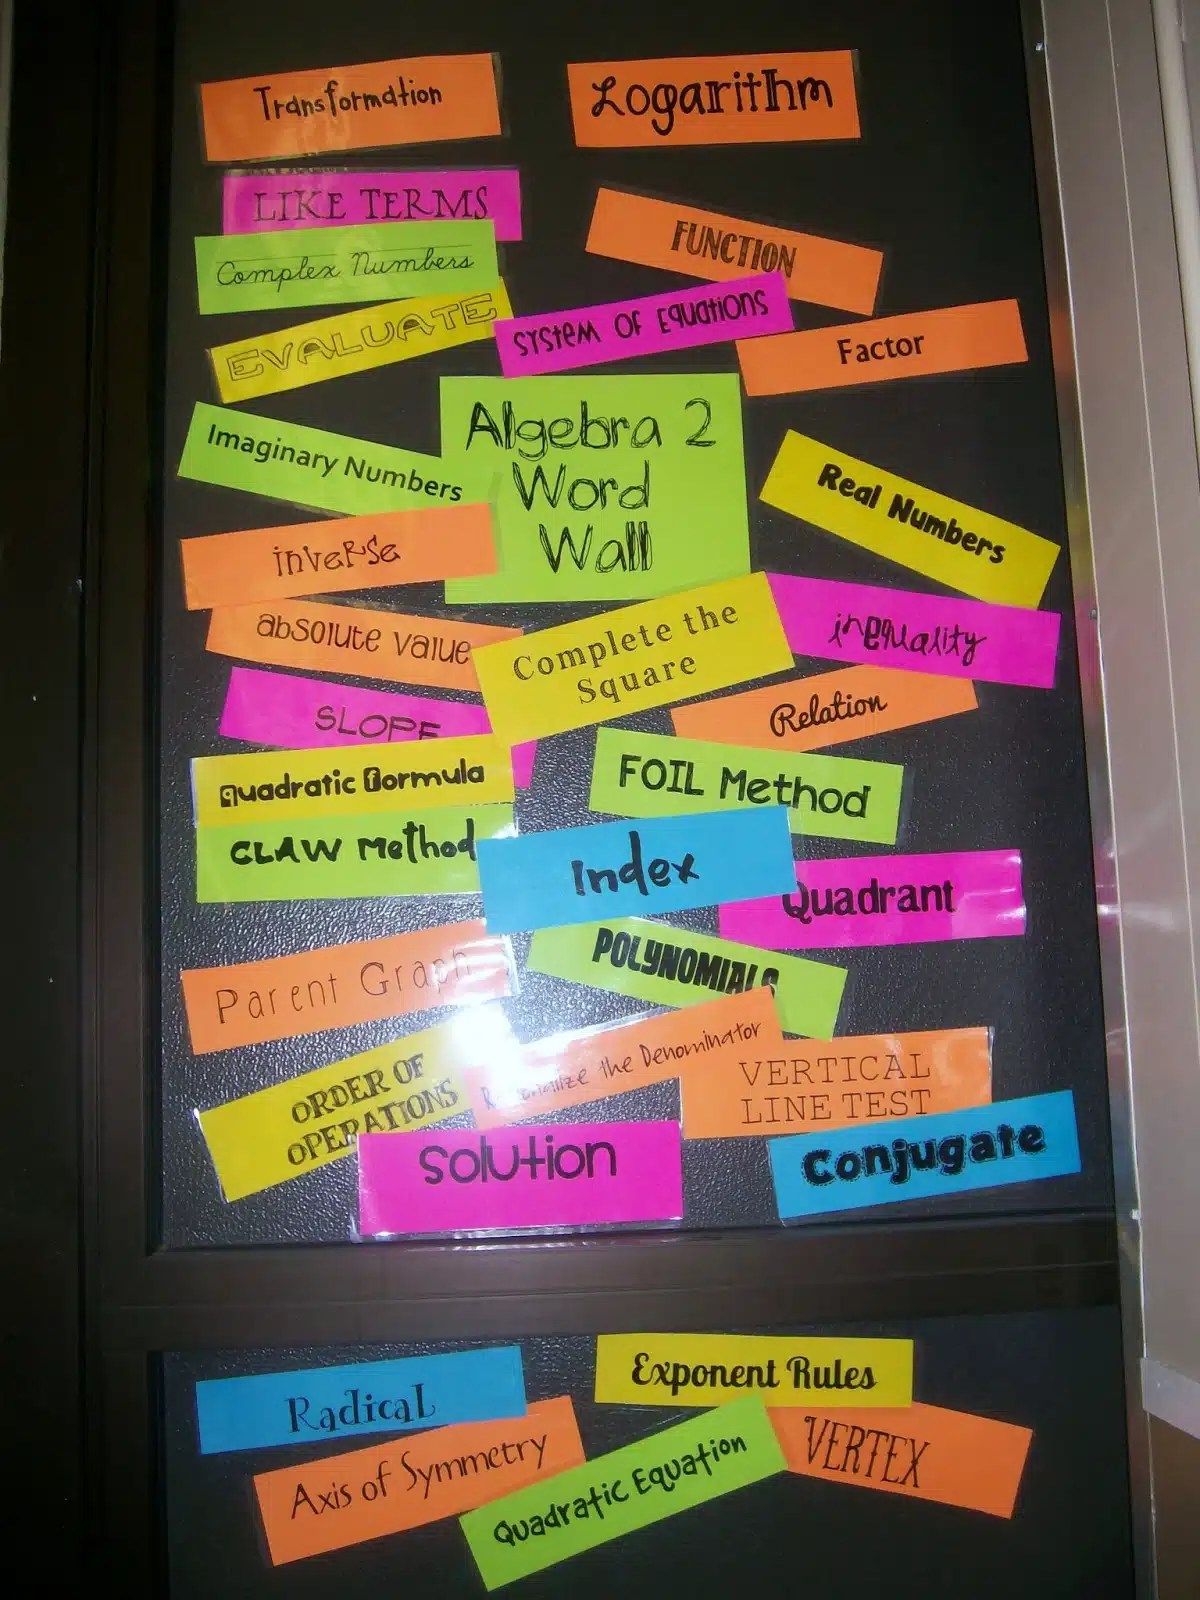 Transformation
Logarithm
LIKE TERMS
FUNCTION
Complex Numbers
EVALUATE
System of Equations
Factor
Algebra 2
Word
Wall
Imaginary Numbers
Real Numbers
inverse
absolute value
Complete the
Square
inequality
SLOPE
Relation
quadratic formula
FOIL Method
CLAW Method
Index
Quadrant
Parent Graph
POLYNOMIALS
ORDER OF
OPERATIONS
Rationalize the Denominator
VERTICAL
LINE TEST
Solution
Conjugate
Radical
Exponent Rules
Axis of Symmetry
Quadratic Equation
VERTEX